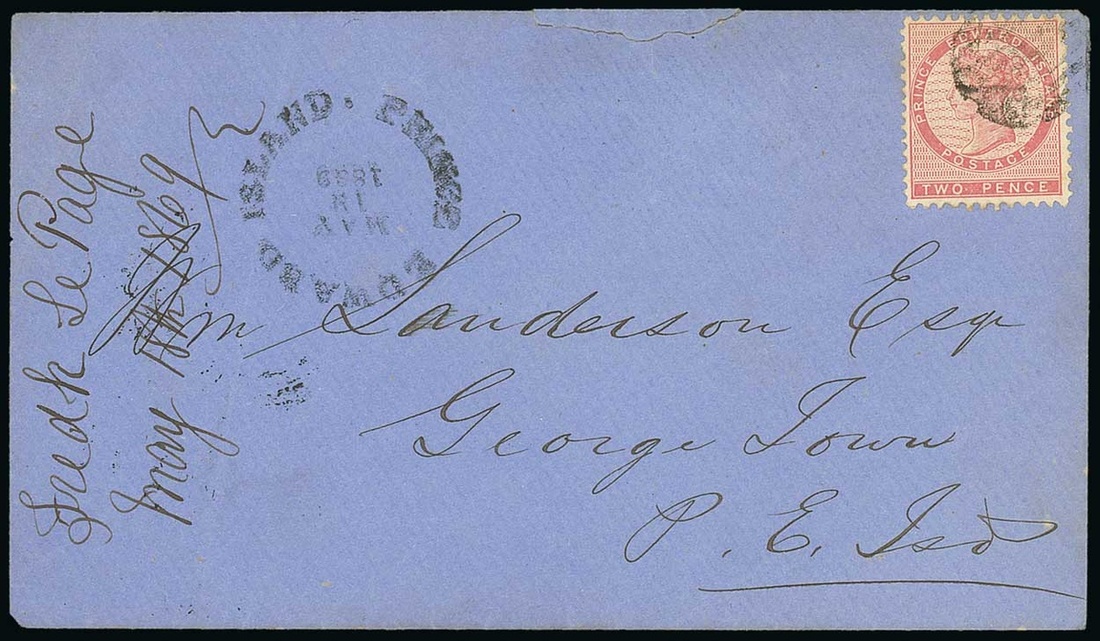 PRINCE EDWARD ISLAND
POSTAGE
TWO PENCE
PRINCE EDWARD ISLAND.
MAY
18
1869
Wm Sanderson Esqr
George Town
P. E. Isd
Fredk Le Page
May 1869